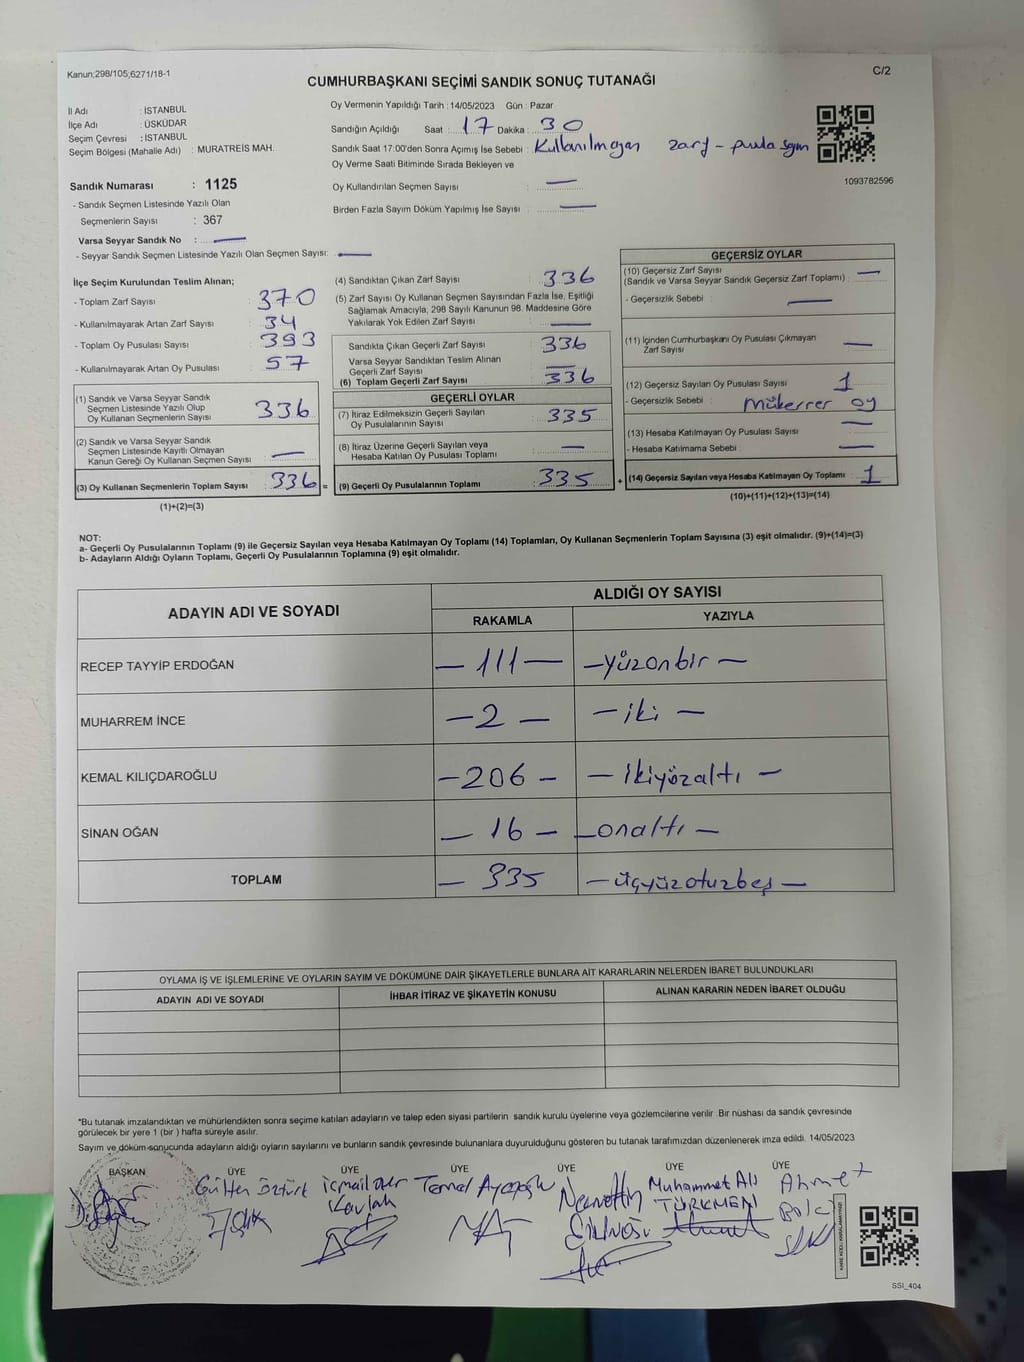 Kanun;298/105;6271/18-1
C/2
CUMHURBAŞKANI SEÇİMİ SANDIK SONUÇ TUTANAĞI
İl Adı : İSTANBUL
İlçe Adı : ÜSKÜDAR
Seçim Çevresi : İSTANBUL
Seçim Bölgesi (Mahalle Adı) : MURATREİS MAH.
Oy Vermenin Yapıldığı Tarih : 14/05/2023 Gün : Pazar
Sandığın Açıldığı Saat : 17 Dakika : 30
Sandık Saat 17:00'den Sonra Açımış İse Sebebi : Kullanılmayan zarf - pusula sayım
Oy Verme Saati Bitiminde Sırada Bekleyen ve
Oy Kullandırılan Seçmen Sayısı : —
Birden Fazla Sayım Döküm Yapılmış İse Sayısı : —
1093782596
Sandık Numarası : 1125
- Sandık Seçmen Listesinde Yazılı Olan
Seçmenlerin Sayısı : 367
Varsa Seyyar Sandık No : —
- Seyyar Sandık Seçmen Listesinde Yazılı Olan Seçmen Sayısı: —
İlçe Seçim Kurulundan Teslim Alınan;
- Toplam Zarf Sayısı : 370
- Kullanılmayarak Artan Zarf Sayısı : 34
- Toplam Oy Pusulası Sayısı : 393
- Kullanılmayarak Artan Oy Pusulası : 57
(1) Sandık ve Varsa Seyyar Sandık
Seçmen Listesinde Yazılı Olup
Oy Kullanan Seçmenlerin Sayısı : 336
(2) Sandık ve Varsa Seyyar Sandık
Seçmen Listesinde Kayıtlı Olmayan
Kanun Gereği Oy Kullanan Seçmen Sayısı : —
(3) Oy Kullanan Seçmenlerin Toplam Sayısı : 336 =
(1)+(2)=(3)
(4) Sandıktan Çıkan Zarf Sayısı : 336
(5) Zarf Sayısı Oy Kullanan Seçmen Sayısından Fazla İse, Eşitliği
Sağlamak Amacıyla, 298 Sayılı Kanunun 98. Maddesine Göre
Yakılarak Yok Edilen Zarf Sayısı : —
Sandıkta Çıkan Geçerli Zarf Sayısı : 336
Varsa Seyyar Sandıktan Teslim Alınan
Geçerli Zarf Sayısı : —
(6) Toplam Geçerli Zarf Sayısı : 336
GEÇERLİ OYLAR
(7) İtiraz Edilmeksizin Geçerli Sayılan
Oy Pusulalarının Sayısı : 335
(8) İtiraz Üzerine Geçerli Sayılan veya
Hesaba Katılan Oy Pusulası Toplamı : —
(9) Geçerli Oy Pusulalarının Toplamı : 335 +
GEÇERSİZ OYLAR
(10) Geçersiz Zarf Sayısı
(Sandık ve Varsa Seyyar Sandık Geçersiz Zarf Toplamı) : —
- Geçersizlik Sebebi : —
(11) İçinden Cumhurbaşkanı Oy Pusulası Çıkmayan
Zarf Sayısı : —
(12) Geçersiz Sayılan Oy Pusulası Sayısı : 1
- Geçersizlik Sebebi : Mükerrer oy
(13) Hesaba Katılmayan Oy Pusulası Sayısı : —
- Hesaba Katılmama Sebebi : —
(14) Geçersiz Sayılan veya Hesaba Katılmayan Oy Toplamı : 1
(10)+(11)+(12)+(13)=(14)
NOT:
a- Geçerli Oy Pusulalarının Toplamı (9) ile Geçersiz Sayılan veya Hesaba Katılmayan Oy Toplamı (14) Toplamları, Oy Kullanan Seçmenlerin Toplam Sayısına (3) eşit olmalıdır. (9)+(14)=(3)
b- Adayların Aldığı Oyların Toplamı, Geçerli Oy Pusulalarının Toplamına (9) eşit olmalıdır.
ADAYIN ADI VE SOYADI
ALDIĞI OY SAYISI
RAKAMLA YAZIYLA
RECEP TAYYİP ERDOĞAN — 111 — — yüzonbir —
MUHARREM İNCE — 2 — — iki —
KEMAL KILIÇDAROĞLU — 206 — — ikiyüzaltı —
SİNAN OĞAN — 16 — — onaltı —
TOPLAM — 335 — üçyüzotuzbeş —
OYLAMA İŞ VE İŞLEMLERİNE VE OYLARIN SAYIM VE DÖKÜMÜNE DAİR ŞİKAYETLERLE BUNLARA AİT KARARLARIN NELERDEN İBARET BULUNDUKLARI
ADAYIN ADI VE SOYADI İHBAR İTİRAZ VE ŞİKAYETİN KONUSU ALINAN KARARIN NEDEN İBARET OLDUĞU
*Bu tutanak imzalandıktan ve mühürlendikten sonra seçime katılan adayların ve talep eden siyasi partilerin sandık kurulu üyelerine veya gözlemcilerine verilir. Bir nüshası da sandık çevresinde
görülecek bir yere 1 (bir ) hafta süreyle asılır.
Sayım ve döküm sonucunda adayların aldığı oyların sayılarını ve bunların sandık çevresinde bulunanlara duyurulduğunu gösteren bu tutanak tarafımızdan düzenlenerek imza edildi. 14/05/2023
BAŞKAN ÜYE ÜYE ÜYE ÜYE ÜYE ÜYE
Gülten Öztürk
Temel
Muhammet Ali
TÜRKMEN
Ahmet
SSI_404